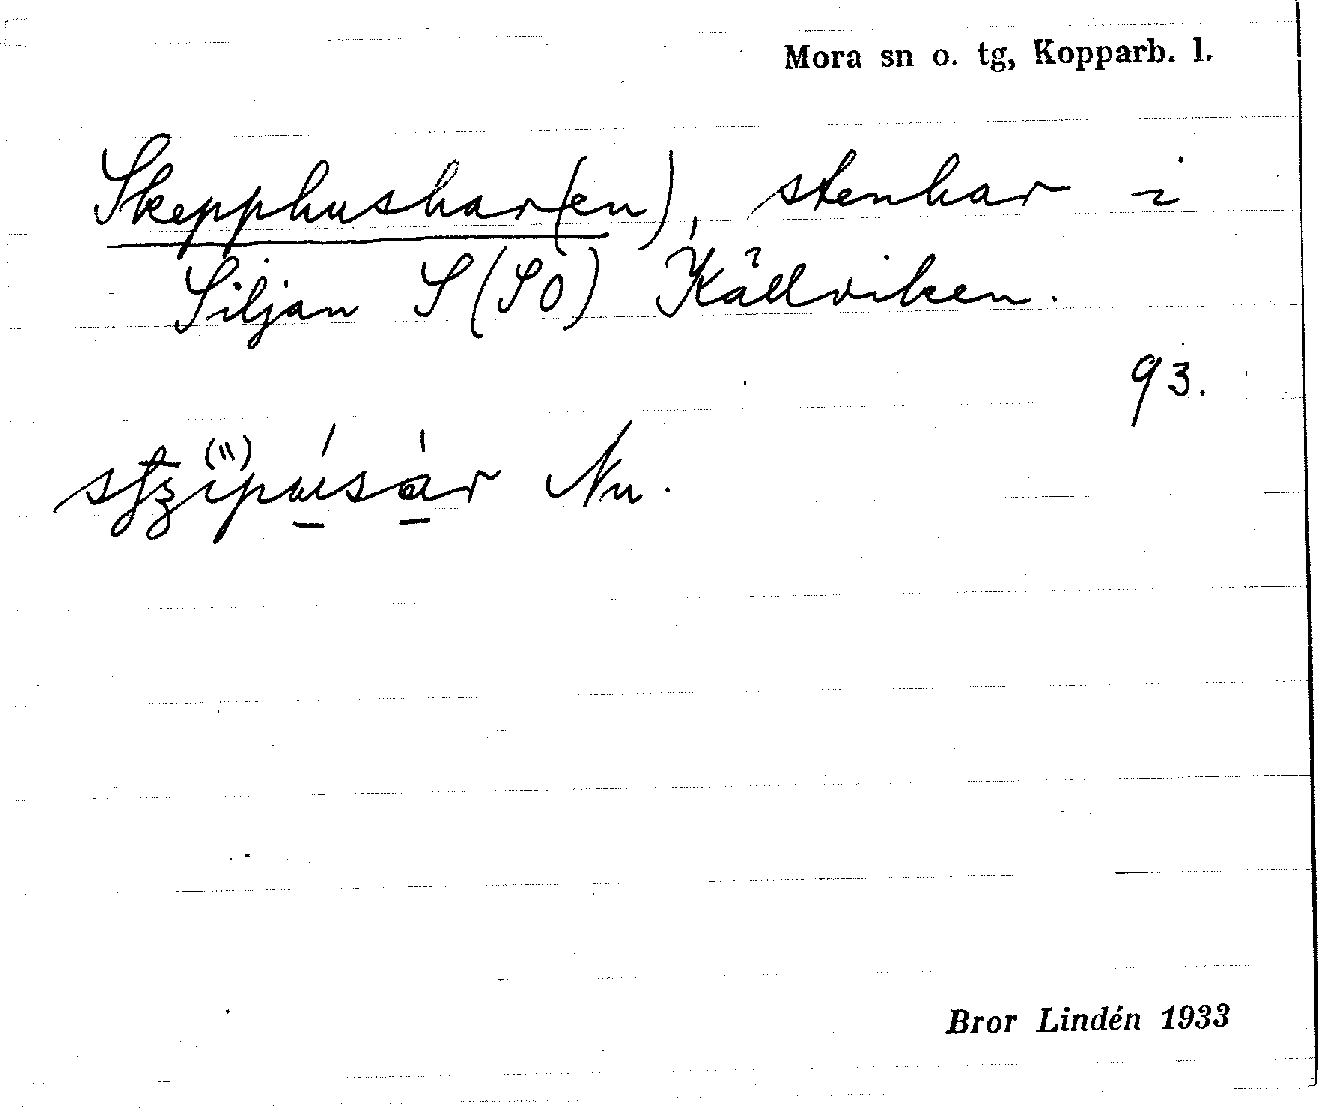 Mora sn o. tg, Kopparb. l.
Skepphushar(en), stenhar i
Siljan S (SÖ) Källviken.
93.
Nu.
Bror Lindén 1933